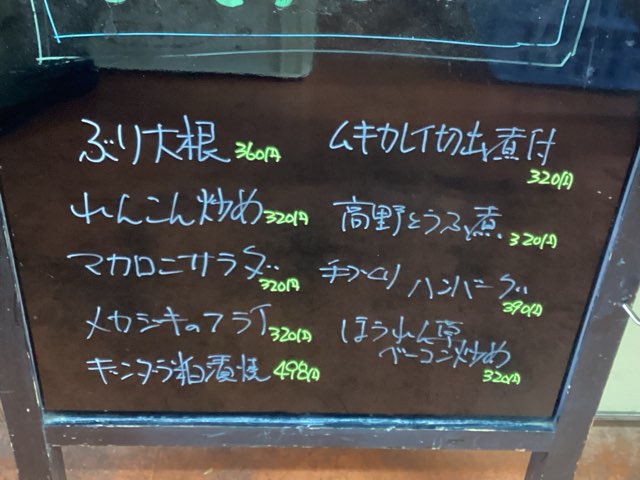 ぶり大根 360円
れんこん炒め 320円
マカロニサラダ 320円
メカジキのフライ 320円
キンダラ粕漬焼 498円
ムキカレイ切出煮付
320円
高野とうふ煮 320円
手づくりハンバーグ
390円
ほうれん草
ベーコン炒め
320円